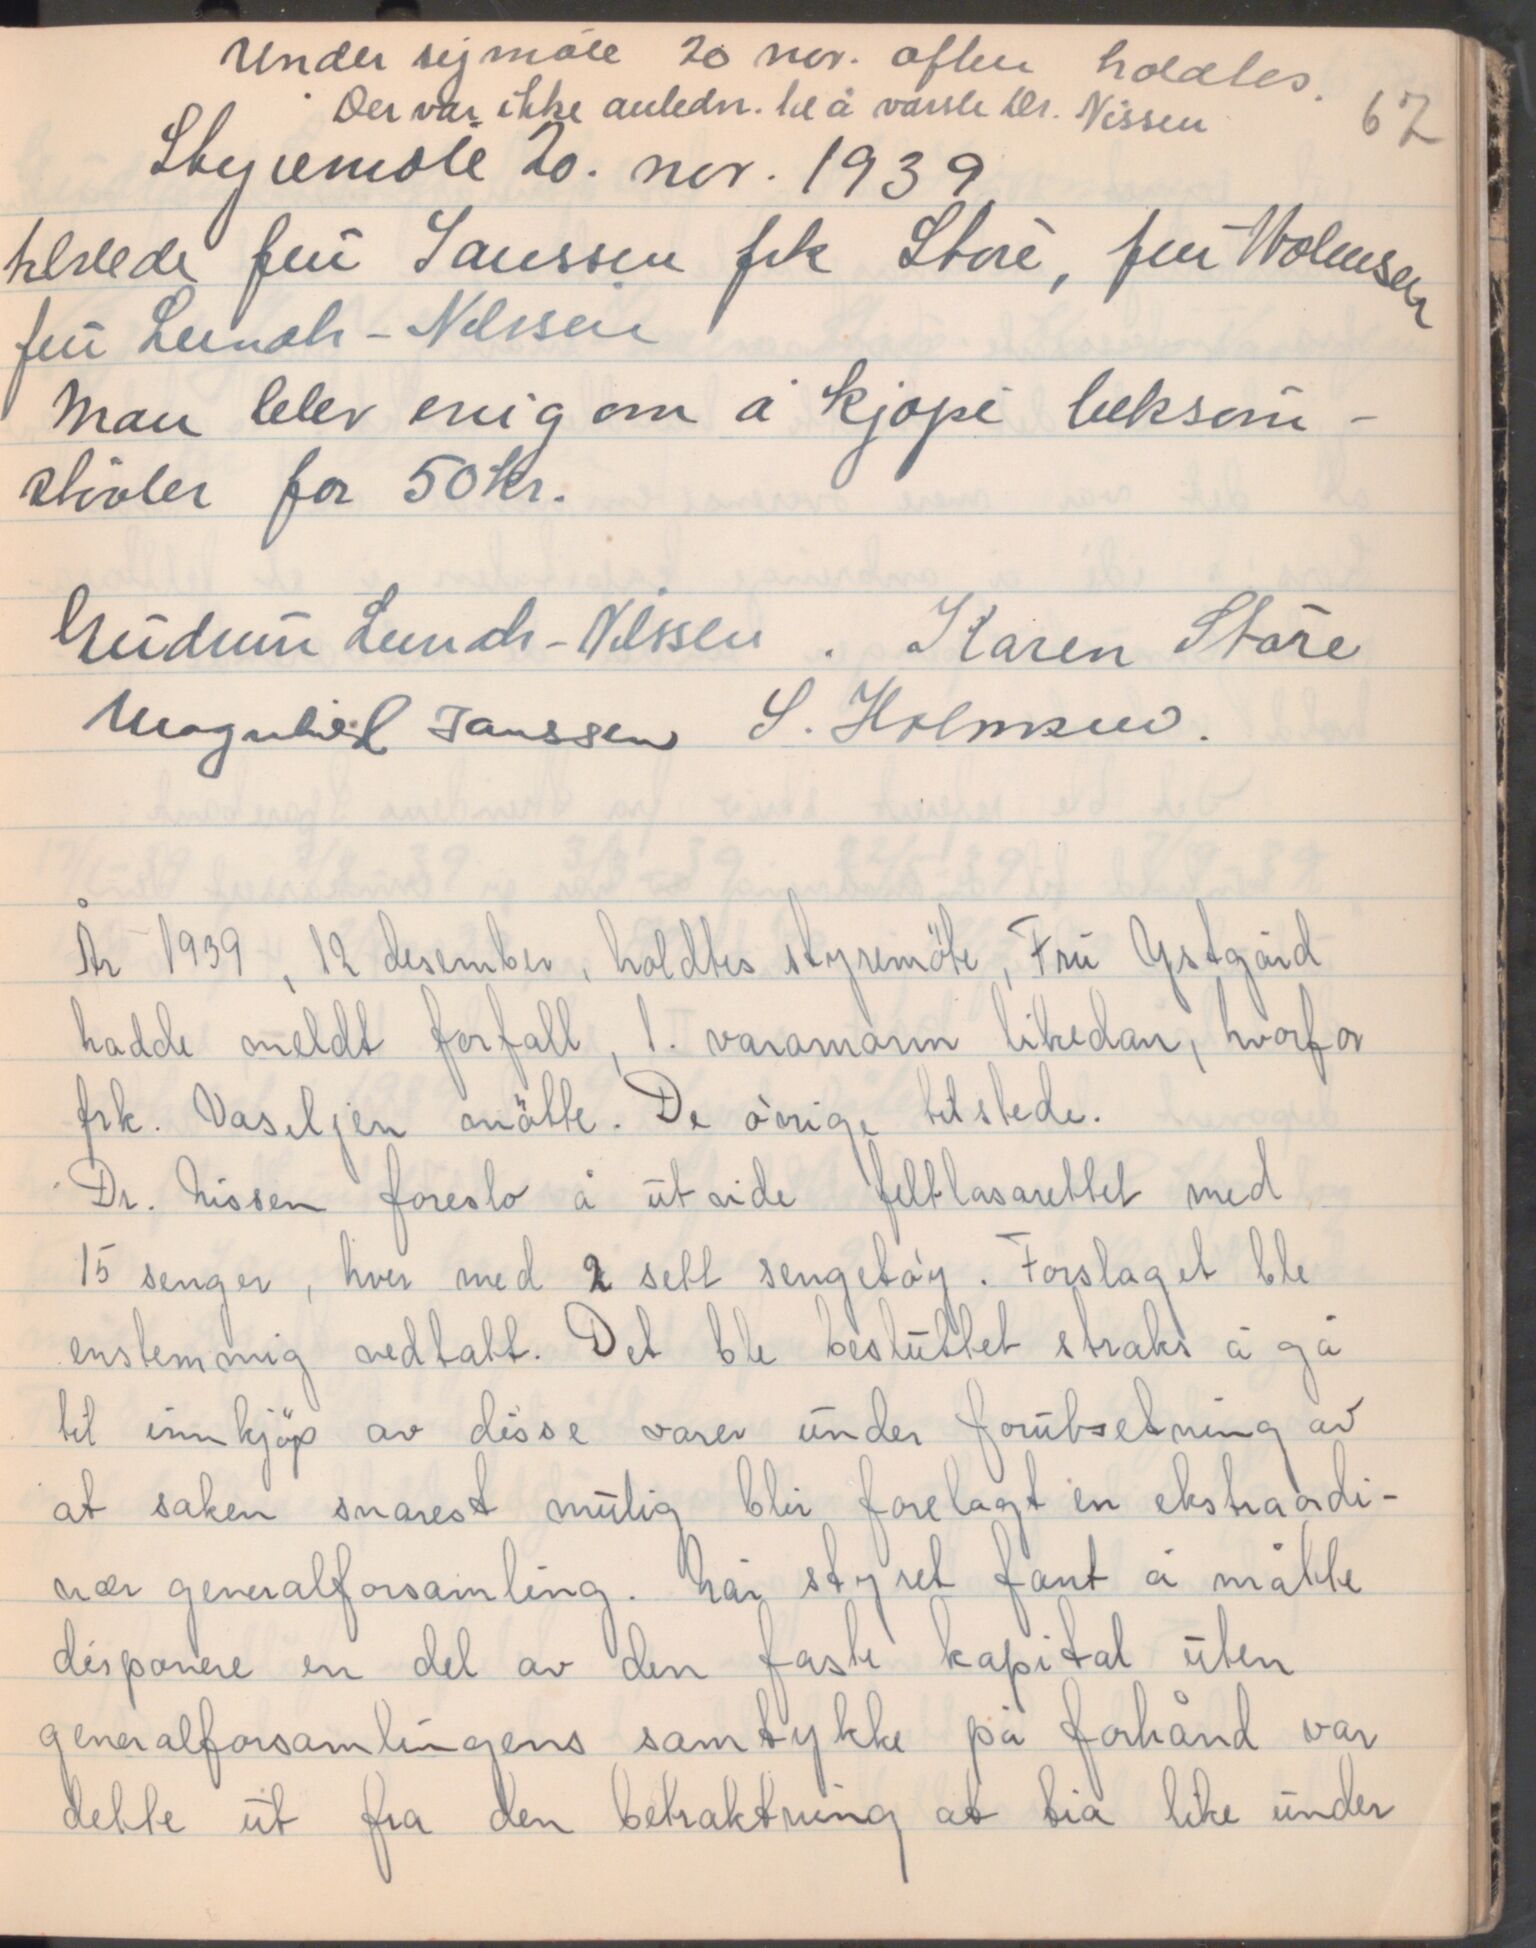 Under symöte 20 nov. aften holdtes.
Der var ikke anledn. til å varsle Dr. Nissen
67
Styremöte 20. nov. 1939
tilstede frü Janssen frk Støre, frü Holmsen
frü Lundh-Nilssen
Man blev enig om å kjøpe beksöm-
stövler for 50 kr.
Güdrün Lundh-Nilssen. Karen Støre
Magnhild Janssen S. Holmsen.
År 1939, 12 desember, holdtes styremöte, Frü Ystgård
hadde meldt forfall, 1. varamann likedan, hvorfor
frk. Vaseljen mötte. De övrige tilstede.
Dr. Nissen foreslo å ütvide feltlasarettet med
15 senger, hver med 2 sett sengetöy. Forslaget ble
enstemmig vedtatt. Det ble beslüttet straks å gå
til innkjöp av disse varer ünder forütsetning av
at saken snarest mülig blir forelagt en ekstraordi-
nær generalforsamling. Når styret fant å måtte
disponere en del av den faste kapital üten
generalforsamlingens samtykke på forhånd var
dette üt fra den betraktning at tia like ünder